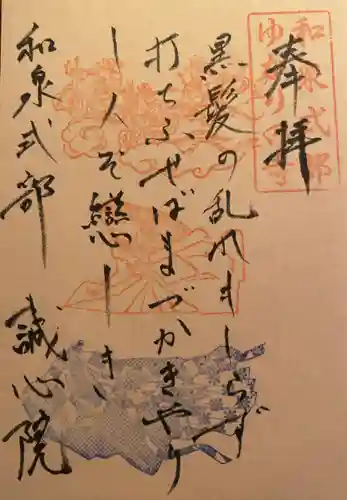 奉拝
和泉式部
ゆかりの寺
黒髪の乱れもしらず
打ちふせばまづかきやり
し人ぞ戀しき
和泉式部
誠心院